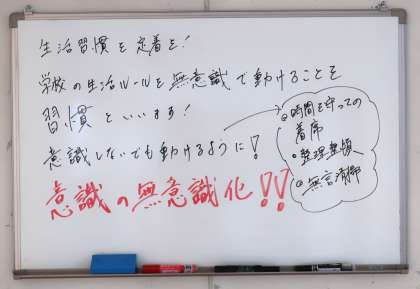 生活習慣を定着を!
学校の生活ルールを無意識で動けることを
習慣といいます!
意識しないでも動けるように!
意識の無意識化!!
◎時間を守っての
着席
・整理整頓
◎無言清掃